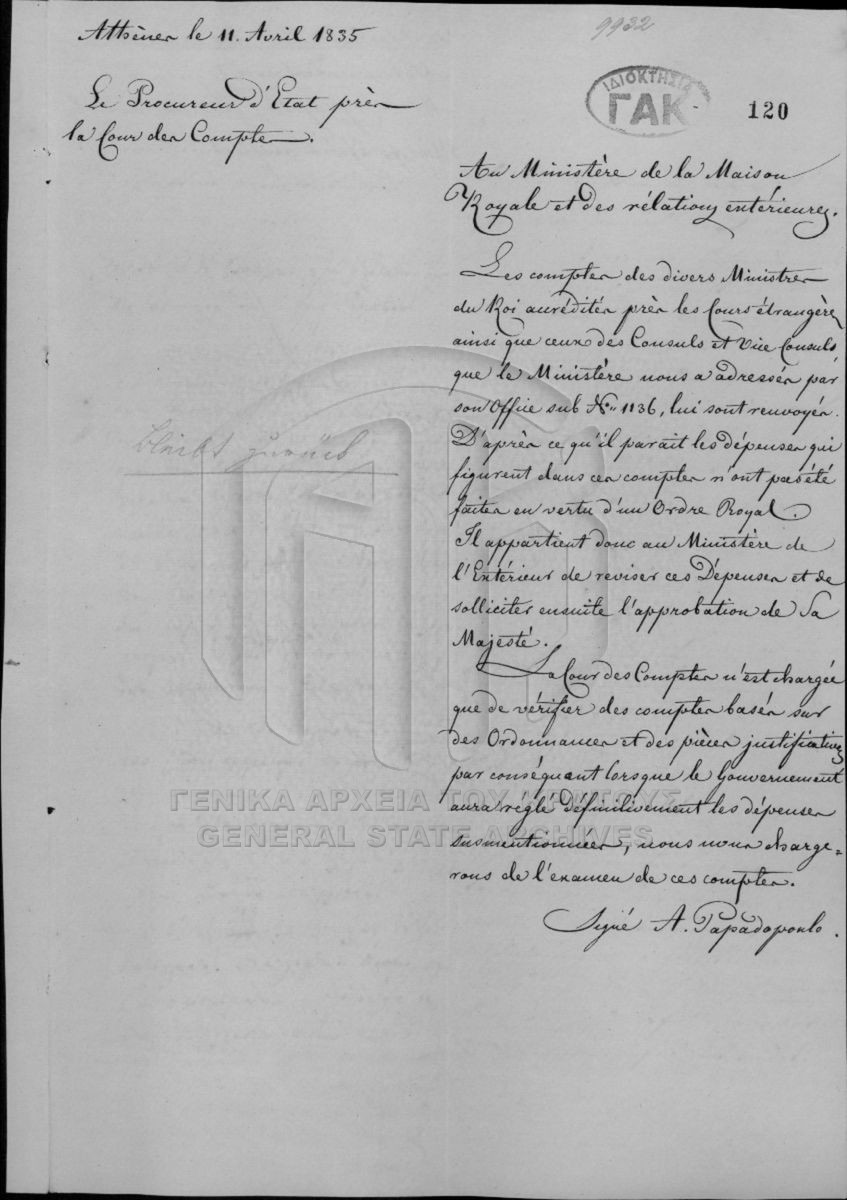 9932
Athènes le 11. Avril 1835
Le Procureur d'Etat près
la Cour des Comptes.
ΙΔΙΟΚΤΗΣΙΑ
ΓΑΚ
120
Au Ministère de la Maison
Royale et des rélations extérieures.
Les comptes des divers Ministres
du Roi accrédités près les Cours étrangères
ainsi que ceux des Consuls et Vice Consuls
que le Ministère nous a adressés par
son Office sub N.º 1136, lui sont renvoyés.
D'après ce qu'il parait les dépenses qui
figurent dans ces comptes n'ont pas été
faites en vertu d'un Ordre Royal.
Il appartient donc au Ministère de
l'Extérieur de reviser ces Dépenses et de
solliciter ensuite l'approbation de Sa
Majesté.
La Cour des Comptes n'est chargée
que de vérifier des comptes basés sur
des Ordonnances et des pièces justificatives
par conséquent lorsque le Gouvernement
aura réglé définitivement les dépenses
susmentionnees, nous nous charge=
rons de l'examen de ces comptes.
Signé A. Papadopoulo.
bleibt zurück
ΓΕΝΙΚΑ ΑΡΧΕΙΑ ΤΟΥ ΚΡΑΤΟΥΣ
GENERAL STATE ARCHIVES